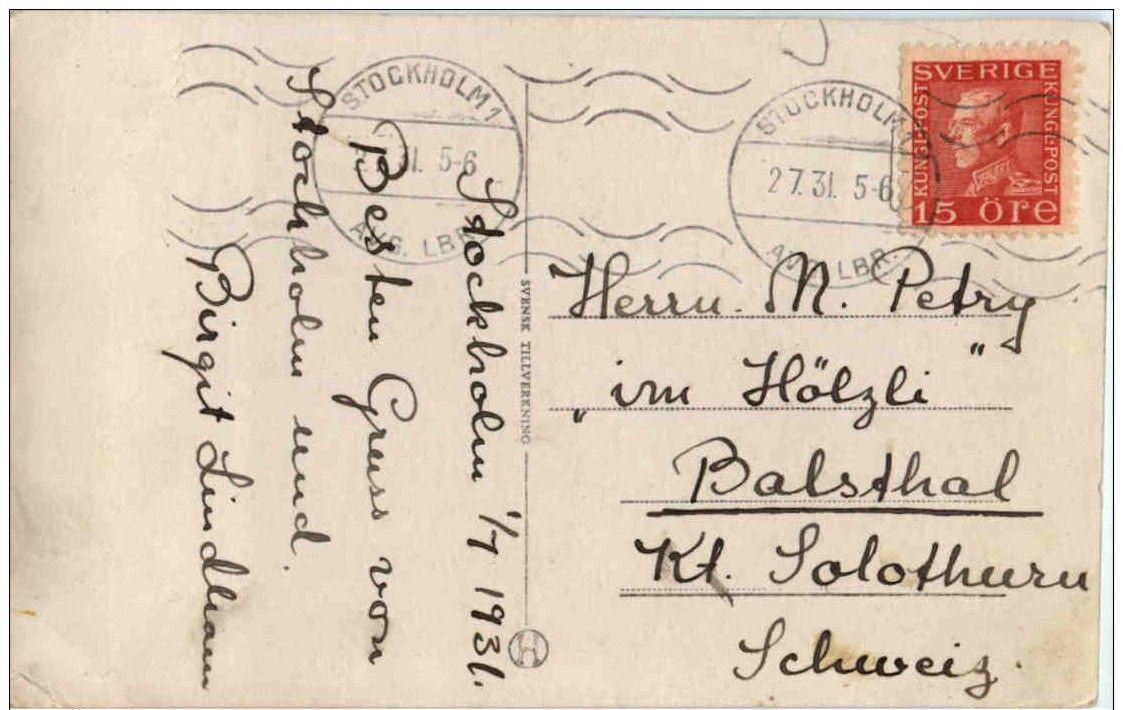 Stockholm 1/7 1931.
Besten Gruss von
Stockholm und.
Birgit Lindham
SVENSK TILLVERKNING
STOCKHOLM 1
31. 5-6
AVG. LBR.
STOCKHOLM 1
2 7. 31. 5-6
AVG. LBR.
SVERIGE
KUNGL. POST
KUNGL. POST
15 ÖRE
Herrn. M. Petry
„im Hölzli"
Balsthal
Kt. Solothurn
Schweiz.